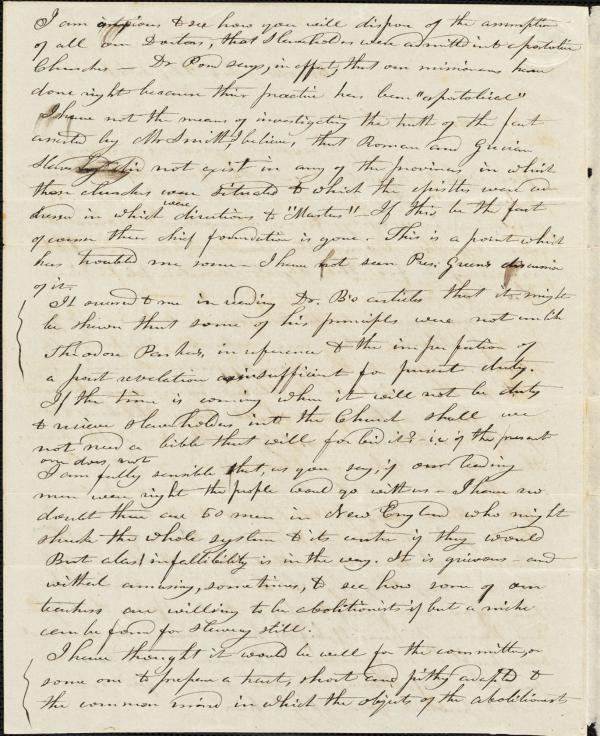 I am anxious to see how you will dispose of the assumption
of all our Doctors, that slaveholders were admitted into apostolic
Churches — Dr Pond says, in effect, that our missionaries have
done right because their practice has been "apostolical"
I have not the means of investigating the truth of the fact
asserted by Mr Smith, I believe, that Roman and Grecian
Slavery did not exist in any of the provinces in which
those churches were situated to which the epistles were ad
dressed in which were directions to "Masters". If this be the fact
of course their chief foundation is gone. This is a point which
has troubled me some — I have not seen Pres. Green's discussion
of it.
It seemed to me in reading Dr. B's articles that it might
be shewn that some of his principles were not unlike
Theodore Parker's, in reference to the imperfection of
a past revelation as insufficient for present duty.
If the time is coming when it will not be duty
to receive slaveholders into the Church shall we
not need a bible that will forbid it? — i.e. if the present
one does not
I am fully sensible that, as you say, if our leading
men were right the people would go with us — I have no
doubt there are 50 men in New England who might
shake the whole system to its centre if they would
But alas! infallibility is in the way. It is grievous — and
withal amusing, sometimes, to see how some of our
teachers are willing to be abolitionists if but a niche
can be found for slavery still.
I have thought it would be well for the committee, or
some one to prepare a tract, short and pithy adapted to
the common mind in which the objects of the abolitionists